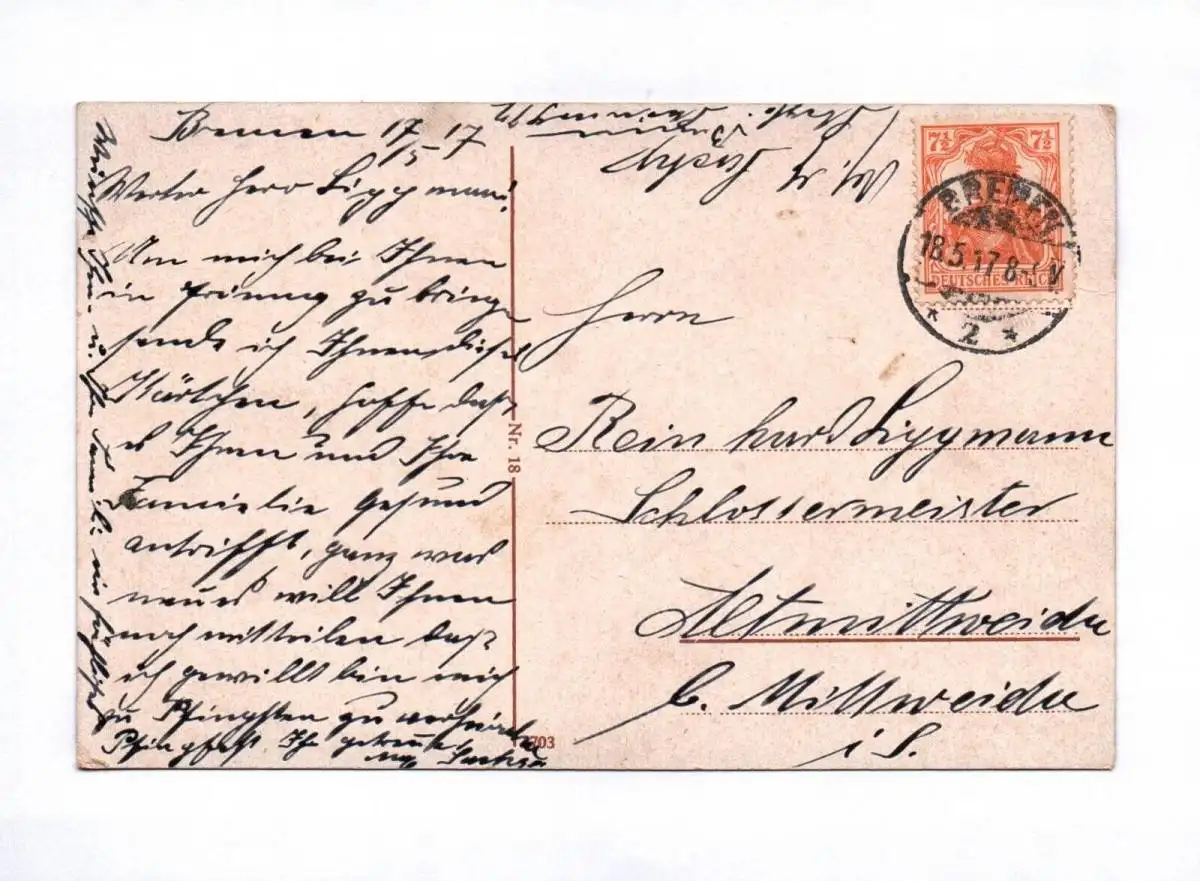 Bremen 17/5 17
Werter Herr Lippmann!
Um mich bei Ihnen
in Erinnrung zu bringen
sende ich Ihnen dieses
Kärtchen, hoffe daß
es Ihnen und Ihre
Familie gesund
antrifft, ganz was
neues will Ihnen
noch mitteilen daß
ich gewillt bin mich
zu Pfingsten zu
Ihr getreuer
Wünsche Ihnen u. Ihrer Familie ein fröhliches
Pfingstfest
Nr. 18
703
7½ 7½
DEUTSCHES REICH
BREMEN
18.5.17 8-9V
* 2 *
Herrn
Reinhard Lippmann
Schlossermeister
Altmittweida
b. Mittweida
i S.